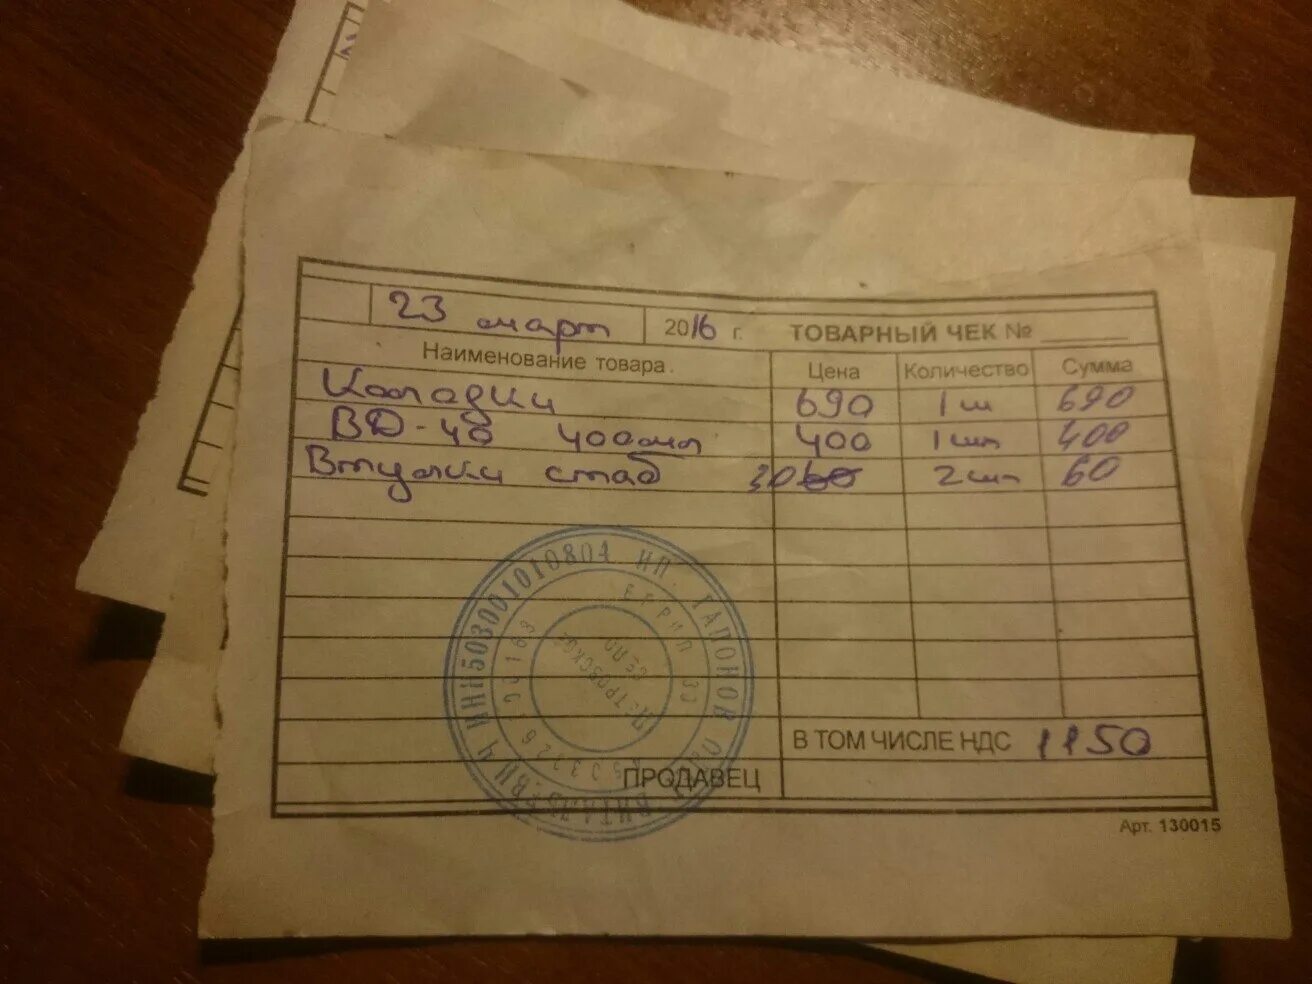 23 март 2016 г. ТОВАРНЫЙ ЧЕК №
Наименование товара. Цена Количество Сумма
Колодки 690 1 ш 690
ВД-40 400мл 400 1 шт 400
Втулки стаб 30 60 2 шт 60
В ТОМ ЧИСЛЕ НДС 1150
ПРОДАВЕЦ
Арт. 130015
ИНН503001010804 ИП ГАПОНОВ ВИТАЛЬЕВИЧ
ЕГРИП
Петровское